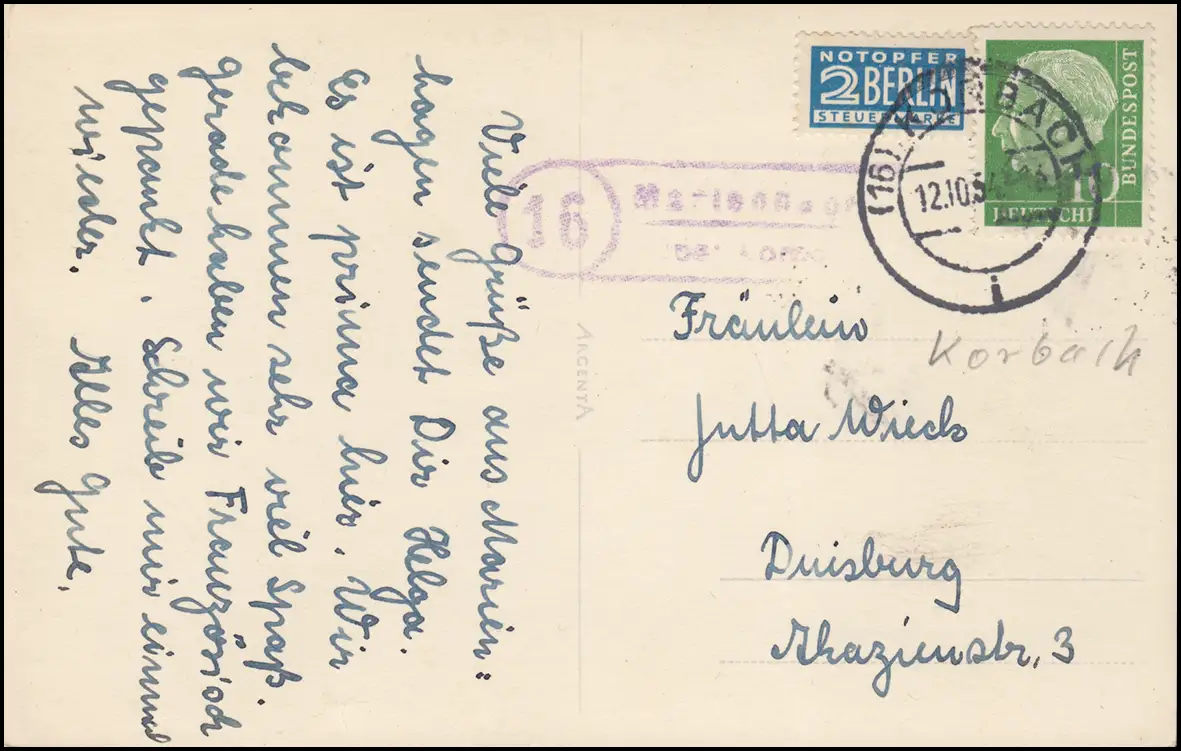 Viele Grüße aus Marien=
hagen sendet Dir Helga.
Es ist prima hier. Wir
bekommen sehr viel Spaß.
Gerade haben wir Französisch
gepaukt. Schreib mir einmal
wieder. Alles Gute.
NOTOPFER
2 BERLIN
STEUERMARKE
DEUTSCHE
BUNDESPOST
10
(16) KORBACH
12.10.54
i
16
Marienhagen
ARGENTA
Fräulein
Korbach
Jutta Wieck
Duisburg
Akazienstr. 3